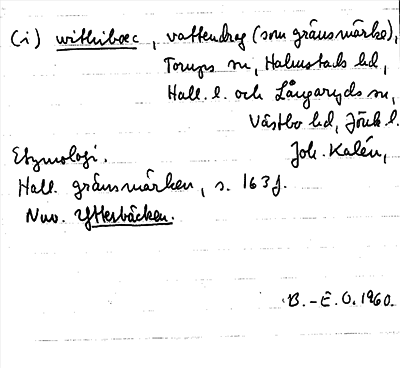 (i) withibæc, vattendrag (som gränsmärke),
Torups sn, Halmstads hd,
Hall. l. och Långaryds sn,
Västbo hd, Jönk l.
Etymologi. Joh. Kalén,
Hall. gränsmärken, s. 163 f.
Nuv. Ytterbäcken.
B.-E. O. 1960.